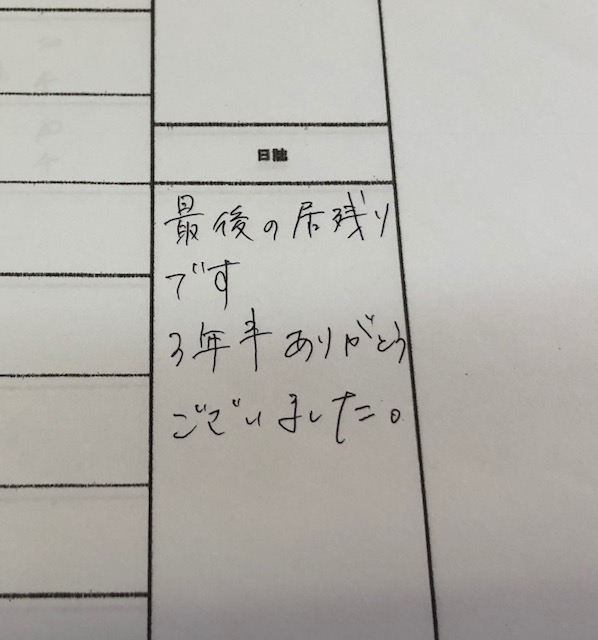 日誌
最後の居残り
です
3年半ありがとう
ございました。